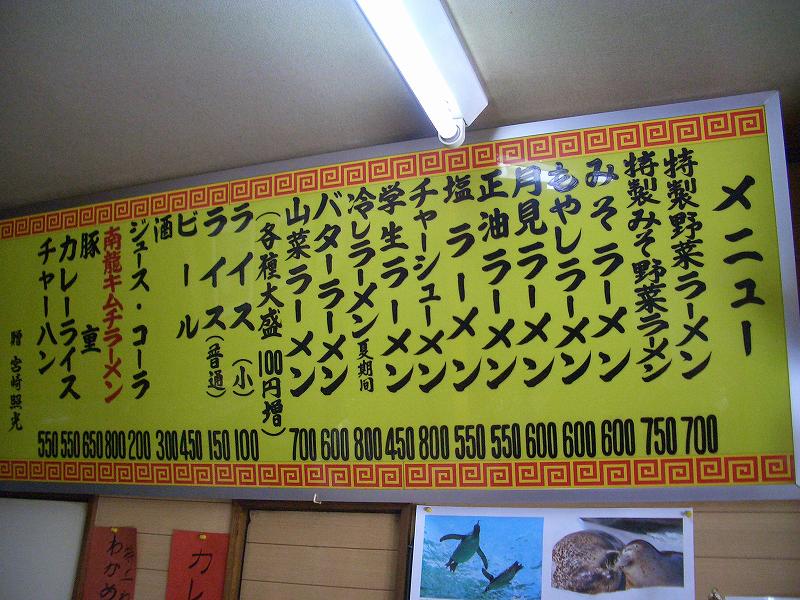 メニュー
特製野菜ラーメン 700
特製みそ野菜ラーメン 750
みそラーメン 600
もやしラーメン 600
月見ラーメン 600
正油ラーメン 550
塩ラーメン 550
チャーシューメン 800
学生ラーメン 450
冷しラーメン夏期間 800
バターラーメン 600
山菜ラーメン 700
(各種大盛 100円増)
ライス(小) 100
ライス(普通) 150
ビール 450
酒 300
ジュース・コーラ 200
南龍キムチラーメン 800
豚重 650
カレーライス 550
チャーハン 550
贈 宮崎照光
カレ
わかめ